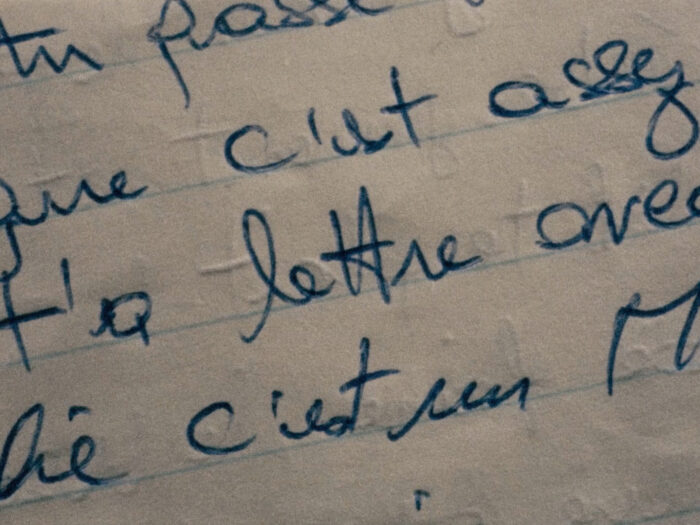 tu passe
que c'est assez
t'a lettre avec
c'est un M